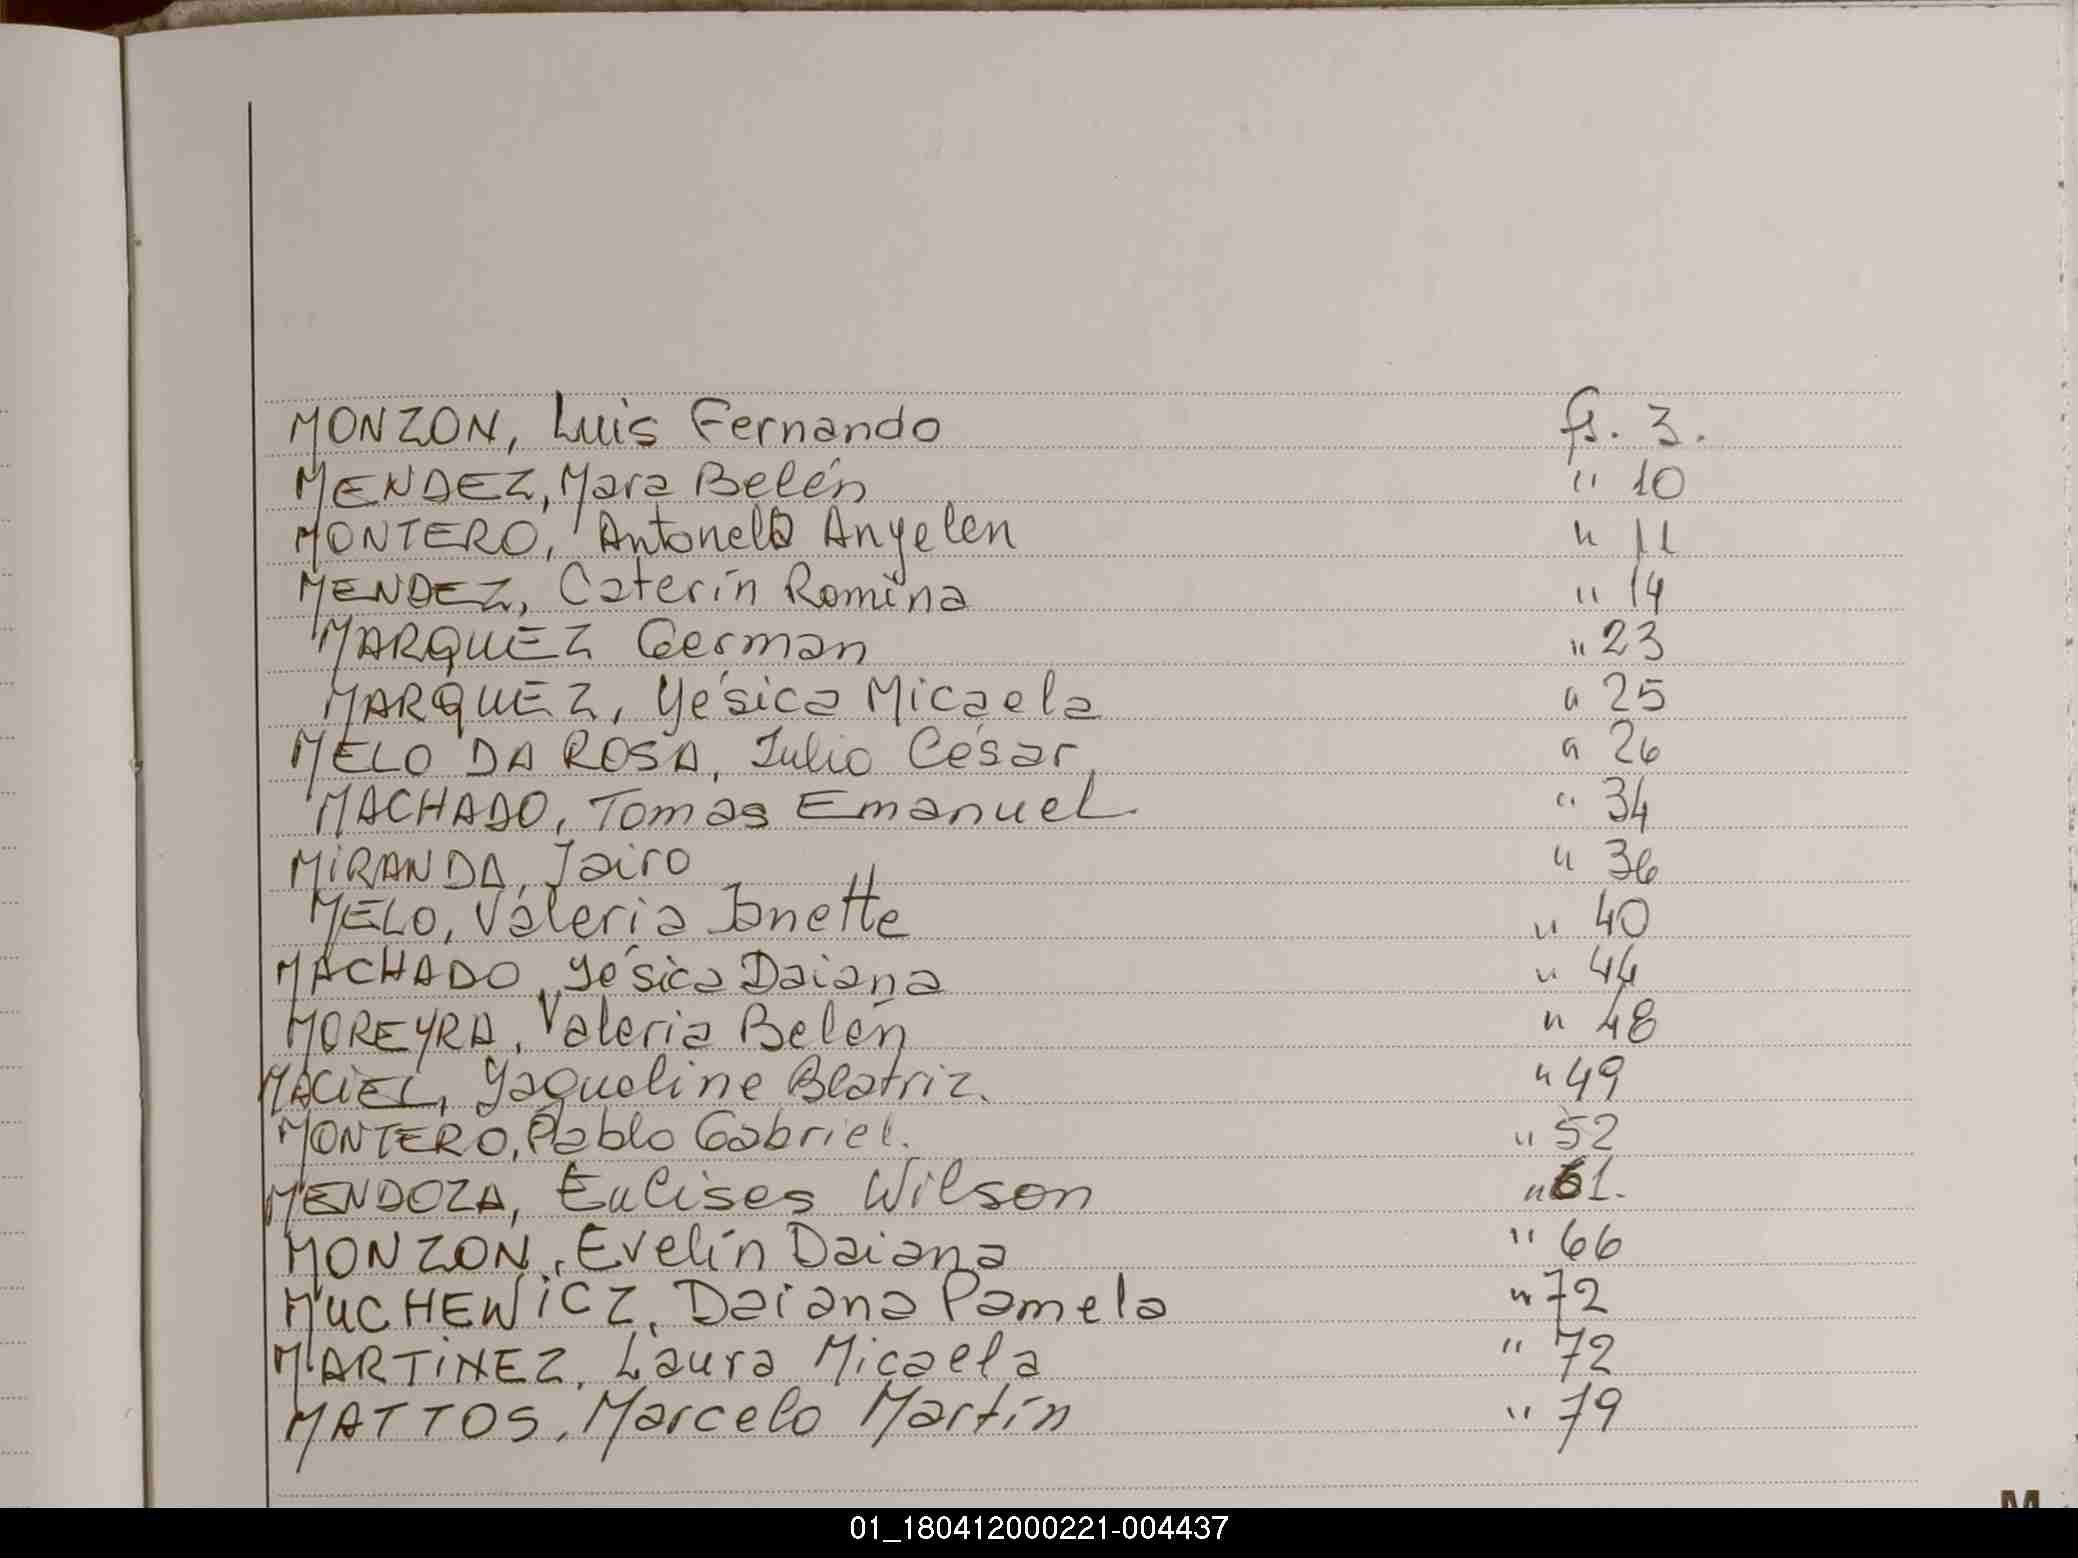 MONZON, Luis Fernando fs. 3.
MENDEZ, Mara Belén " 10
MONTERO, Antonela Anyelen " 11
MENDEZ, Caterín Romina " 14
MARQUEZ German " 23
MARQUEZ, Yésica Micaela " 25
MELO DA ROSA, Julio César " 26
MACHADO, Tomas Emanuel " 34
MIRANDA, Jairo " 36
MELO, Valeria Janette " 40
MACHADO, Yésica Daiana " 44
MOREYRA, Valeria Belén " 48
MACIEL, Yaqueline Beatriz. " 49
MONTERO, Pablo Gabriel. " 52
MENDOZA, Eulises Wilson " 61.
MONZON, Evelín Daiana " 66
MUCHEWICZ, Daiana Pamela " 72
MARTINEZ, Laura Micaela " 72
MATTOS, Marcelo Martín " 79
M
01_180412000221-004437